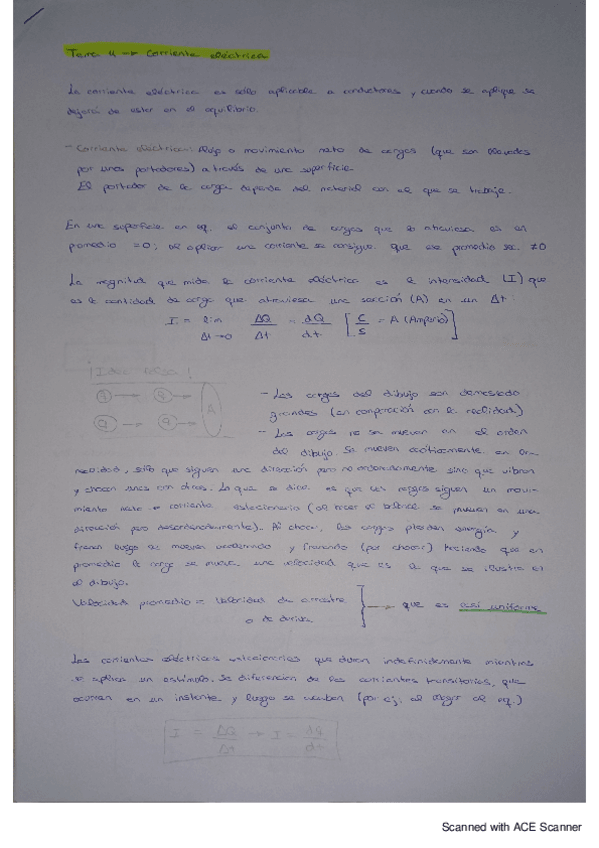 Tema 4 → Corriente eléctrica
La corriente eléctrica es sólo aplicable a conductores y cuando se aplique se
dejará de estar en el equilibrio.
- Corriente eléctrica: flujo o movimiento neto de cargas (que son llevadas
por unos portadores) a través de una superficie.
El portador de la carga depende del material con el que se trabaje.
En una superficie en eq. el conjunto de cargas que la atraviesa es en
promedio = 0; al aplicar una corriente se consigue que ese promedio sea ≠0
La magnitud que mide la corriente eléctrica es la intensidad (I) que
es la cantidad de carga que atraviesa una sección (A) en un Δt:
I = lim ΔQ/Δt = dQ/dt [C/s = A (Amperio)]
Δt→0
¡Idea falsa!
q → q → A
q → q →
- Las cargas del dibujo son demasiado
grandes (en comparación con la realidad)
- Las cargas no se mueven en el orden
del dibujo. Se mueven caóticamente en
realidad, sólo que siguen una dirección pero no ordenadamente sino que vibran
y chocan unas con otras. Lo que se dice es que las cargas siguen un movi-
miento neto o corriente estacionaria (al hacer el balance se mueven en una
dirección pero desordenadamente). Al chocar, las cargas pierden energía y
frenan luego se mueven acelerando y frenando (por chocar) haciendo que en
promedio la carga se mueva a una velocidad que es la que se ilustra en
el dibujo.
Velocidad promedio = velocidad de arrastre
o de deriva → que es casi uniforme
Las corrientes eléctricas estacionarias que duran indefinidamente mientras
se aplica un estímulo. Se diferencian de las corrientes transitorias, que
ocurren en un instante y luego se acaban (por ej: al llegar al eq.)
I = ΔQ/Δt → I = dQ/dt
Scanned with ACE Scanner